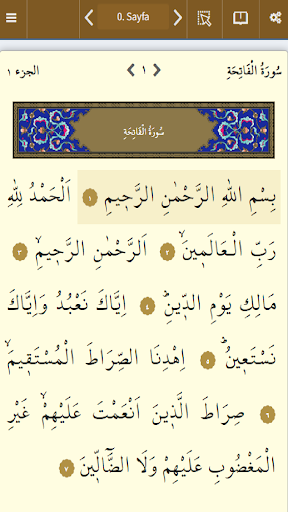 0. Sayfa
سُورَةُ الْفَاتِحَةِ ١ الجزء ١
سُورَةُ الْفَاتِحَةِ
بِسْمِ اللهِ الرَّحْمٰنِ الرَّحٖيمِ ١ اَلْحَمْدُ لِلّٰهِ
رَبِّ الْعَالَمٖينَۙ ٢ اَلرَّحْمٰنِ الرَّحٖيمِۙ ٣
مَالِكِ يَوْمِ الدّٖينِؕ ٤ اِيَّاكَ نَعْبُدُ وَاِيَّاكَ
نَسْتَعٖينُؕ ٥ اِهْدِنَا الصِّرَاطَ الْمُسْتَقٖيمَۙ
٦ صِرَاطَ الَّذٖينَ اَنْعَمْتَ عَلَيْهِمْۙ غَيْرِ
الْمَغْضُوبِ عَلَيْهِمْ وَلَا الضَّٓالّٖينَ ٧